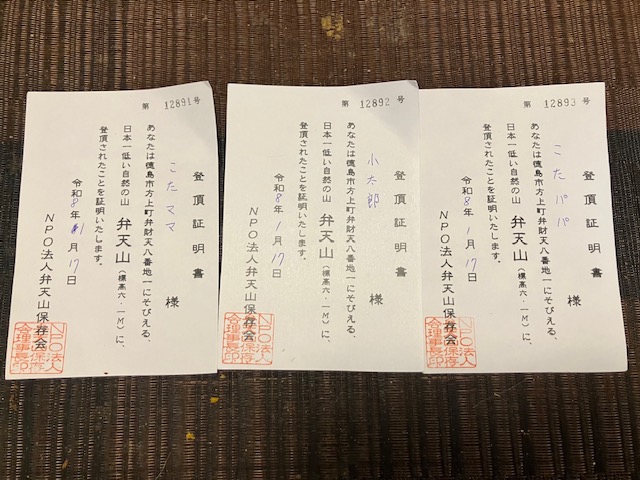 第 12891 号
登頂証明書
こたママ 様
あなたは徳島市方上町弁財天八番地一にそびえる、
日本一低い自然の山 弁天山（標高六・一M）に、
登頂されたことを証明いたします。
令和8年1月17日
NPO法人弁天山保存会
NPO法人
山保存
会理事長印
第 12892 号
登頂証明書
小太郎 様
あなたは徳島市方上町弁財天八番地一にそびえる、
日本一低い自然の山 弁天山（標高六・一M）に、
登頂されたことを証明いたします。
令和8年1月17日
NPO法人弁天山保存会
NPO法人
山保存
会理事長印
第 12893 号
登頂証明書
こたパパ 様
あなたは徳島市方上町弁財天八番地一にそびえる、
日本一低い自然の山 弁天山（標高六・一M）に、
登頂されたことを証明いたします。
令和8年1月17日
NPO法人弁天山保存会
NPO法人
山保存
会理事長印